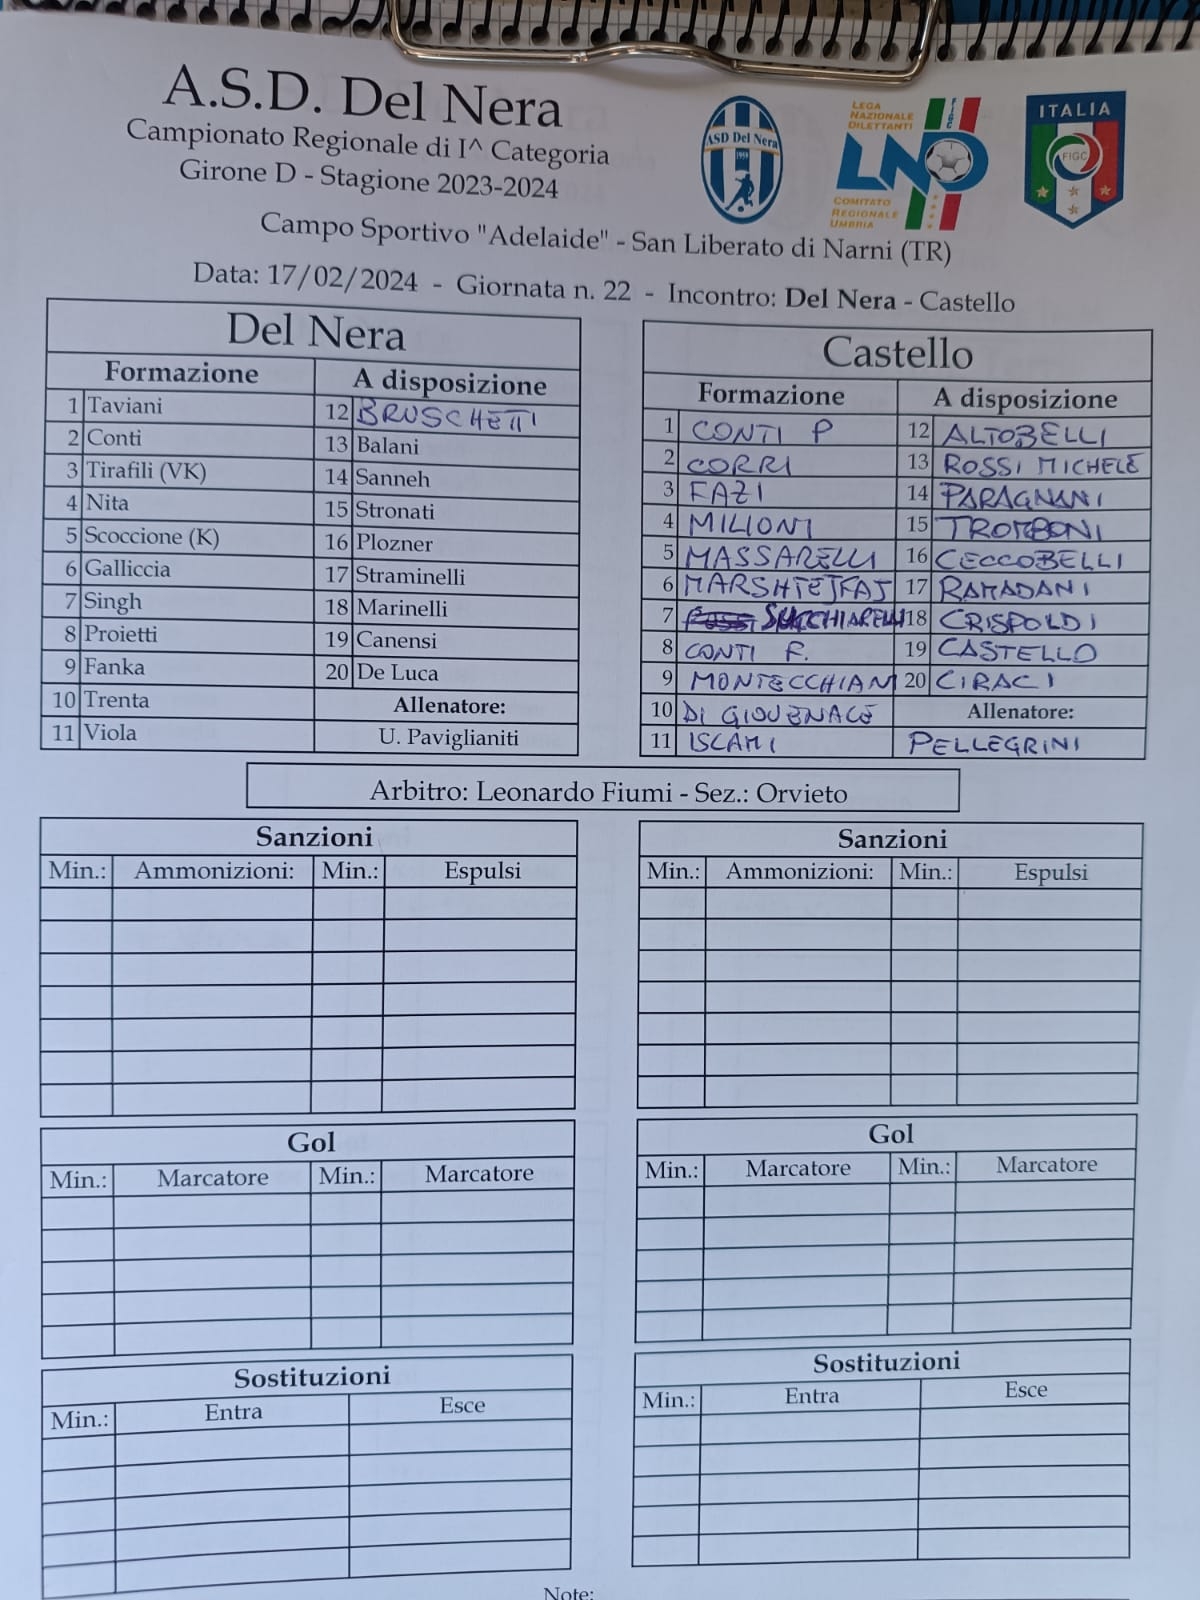 A.S.D. Del Nera
Campionato Regionale di I^ Categoria
Girone D - Stagione 2023-2024
Campo Sportivo "Adelaide" - San Liberato di Narni (TR)
Data: 17/02/2024 - Giornata n. 22 - Incontro: Del Nera - Castello
ASD Del Nera
LEGA
NAZIONALE
DILETTANTI
LND
COMITATO
REGIONALE
UMBRIA
ITALIA
FIGC
Del Nera
Formazione A disposizione
1 Taviani 12 BRUSCHETTI
2 Conti 13 Balani
3 Tirafili (VK) 14 Sanneh
4 Nita 15 Stronati
5 Scoccione (K) 16 Plozner
6 Galliccia 17 Straminelli
7 Singh 18 Marinelli
8 Proietti 19 Canensi
9 Fanka 20 De Luca
10 Trenta Allenatore:
11 Viola U. Paviglianiti
Castello
Formazione A disposizione
1 CONTI P 12 ALTOBELLI
2 CORRI 13 ROSSI MICHELE
3 FAZI 14 PARAGNANI
4 MILIONI 15 TROMBONI
5 MASSARELLI 16 CECCOBELLI
6 17 RAMADANI
7 18 CRISPOLDI
8 CONTI F. 19 CASTELLO
9 MONTECCHIANI 20 CIRACI
10 DI GIOVENALE Allenatore:
11 ISLAMI PELLEGRINI
Arbitro: Leonardo Fiumi - Sez.: Orvieto
Sanzioni
Min.: Ammonizioni: Min.: Espulsi
Sanzioni
Min.: Ammonizioni: Min.: Espulsi
Gol
Min.: Marcatore Min.: Marcatore
Gol
Min.: Marcatore Min.: Marcatore
Sostituzioni
Min.: Entra Esce
Sostituzioni
Min.: Entra Esce
Note: